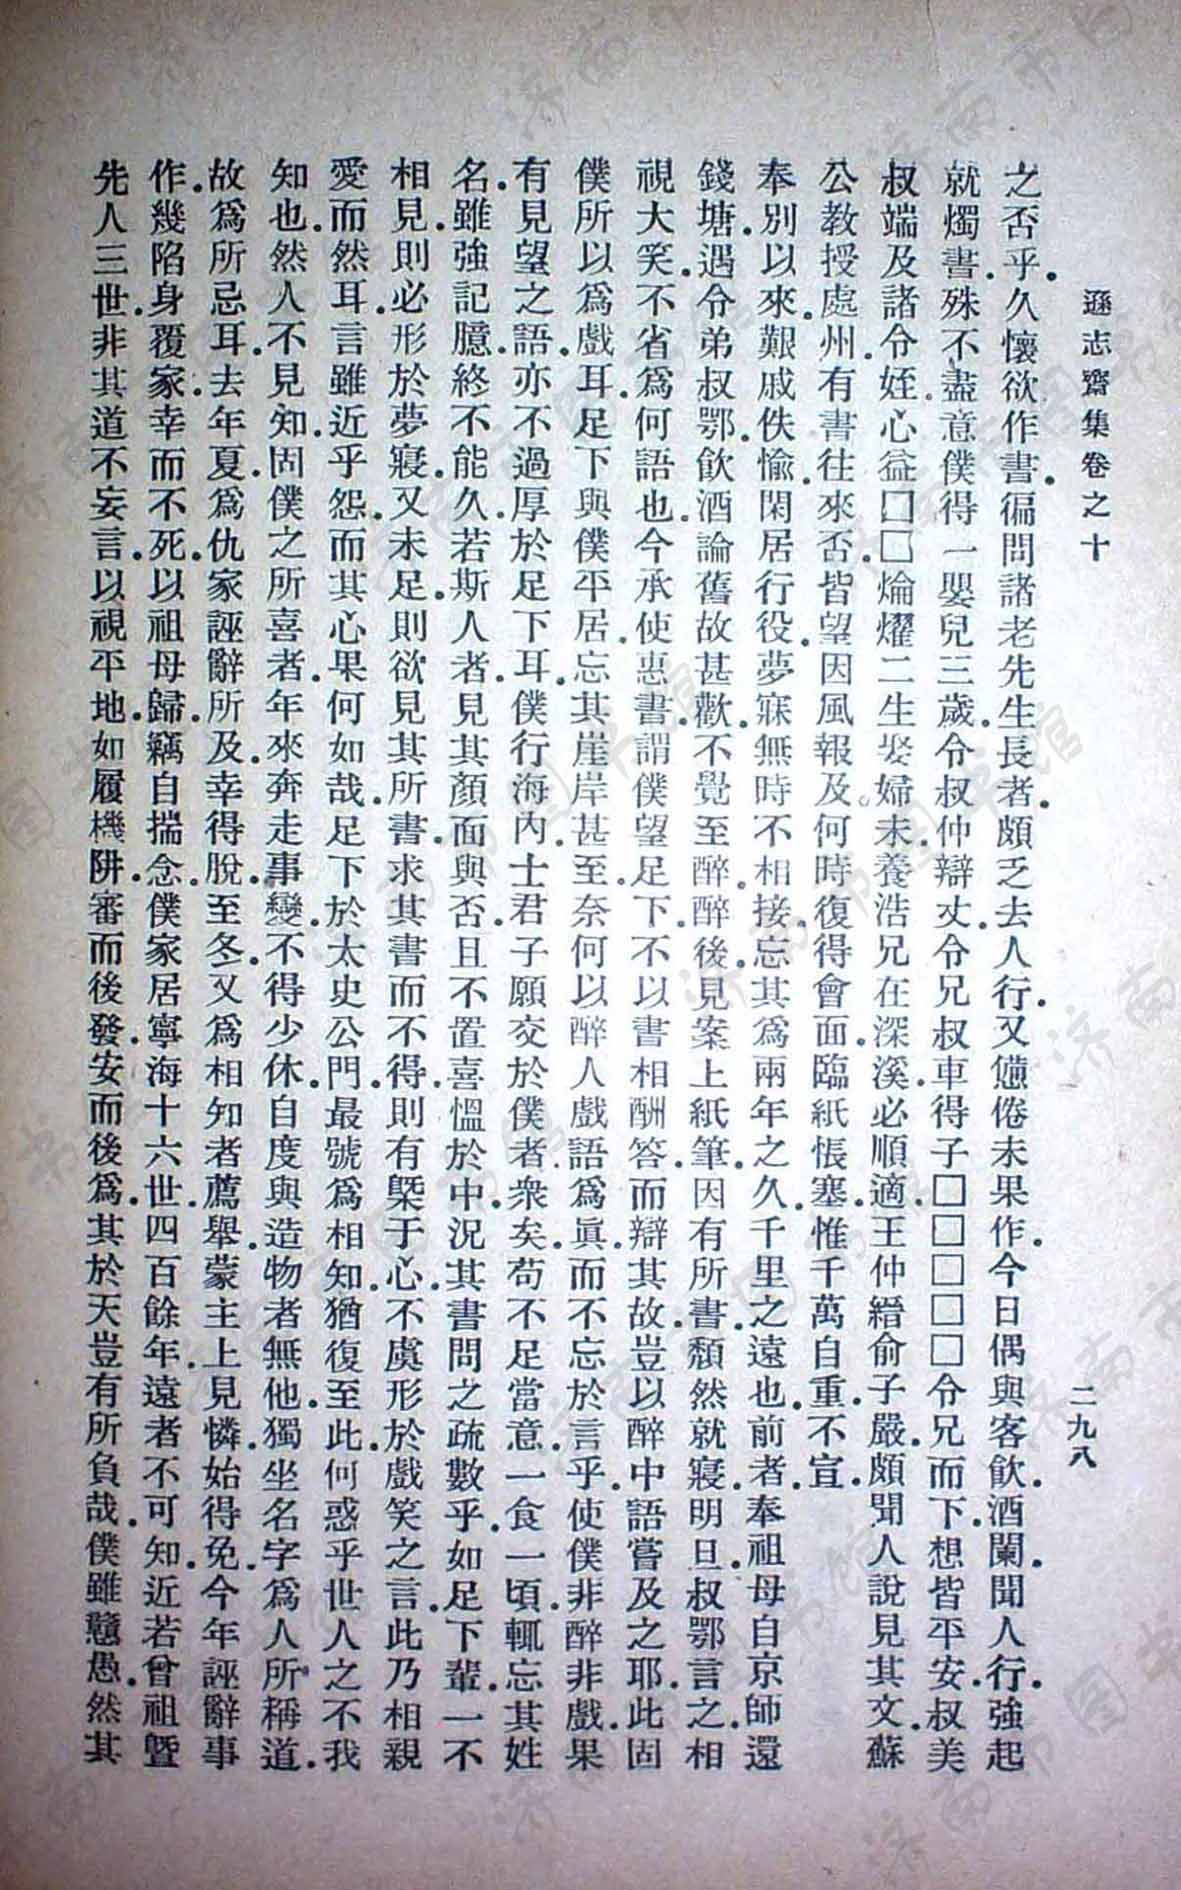 遜志齋集卷之十　二九八
之否乎.久懷欲作書.徧問諸老先生長者.頗乏去人行.又憊倦未果作.今日偶與客飮.酒闌.聞人行.強起
就燭書.殊不盡意僕得一嬰兒三歲.令叔仲辯丈.令兄叔車得子□□□□□令兄而下.想皆平安.叔美
叔端及諸令姪.心益□□爚燿二生娶婦未.養浩兄在深溪.必順適.王仲縉俞子嚴.頗聞人說見其文.蘇
公教授處州.有書往來否.皆望因風報及.何時復得會面.臨紙悵塞.惟千萬自重.不宣.
奉別以來.艱戚佚愉.閑居行役.夢寐無時不相接.忘其爲兩年之久.千里之遠也.前者奉祖母自京師還
錢塘.遇令弟叔鄂.飮酒論舊故甚歡.不覺至醉.醉後.見案上紙筆.因有所書.頽然就寢.明旦.叔鄂言之.相
視大笑.不省爲何語也.今承使惠書.謂僕望足下.不以書相酬答.而辯其故.豈以醉中語嘗及之耶.此固
僕所以爲戲耳.足下與僕平居.忘其崖岸甚至.奈何以醉人戲語爲眞.而不忘於言乎.使僕非醉非戲.果
有見望之語.亦不過厚於足下耳.僕行海內.士君子願交於僕者.衆矣.苟不足當意.一食一頃.輒忘其姓
名.雖強記臆.終不能久.若斯人者.見其顏面與否.且不置喜慍於中.況其書問之疏數乎.如足下輩.一不
相見.則必形於夢寢.又未足.則欲見其所書.求其書而不得.則有槩于心.不虞形於戲笑之言.此乃相親
愛而然耳.言雖近乎怨.而其心果何如哉.足下於太史公門.最號爲相知.猶復至此.何惑乎世人之不我
知也.然人不見知.固僕之所喜者.年來奔走事變.不得少休.自度與造物者無他.獨坐名字爲人所稱道.
故爲所忌耳.去年夏.爲仇家誣辭所及.幸得脫.至冬.又爲相知者薦舉.蒙主上見憐.始得免.今年誣辭事
作.幾陷身覆家.幸而不死.以祖母歸.竊自揣念.僕家居寧海十六世.四百餘年.遠者不可知.近若曾祖曁
先人三世.非其道不妄言.以視平地.如履機阱.審而後發.安而後爲.其於天豈有所負哉.僕雖戇愚.然其